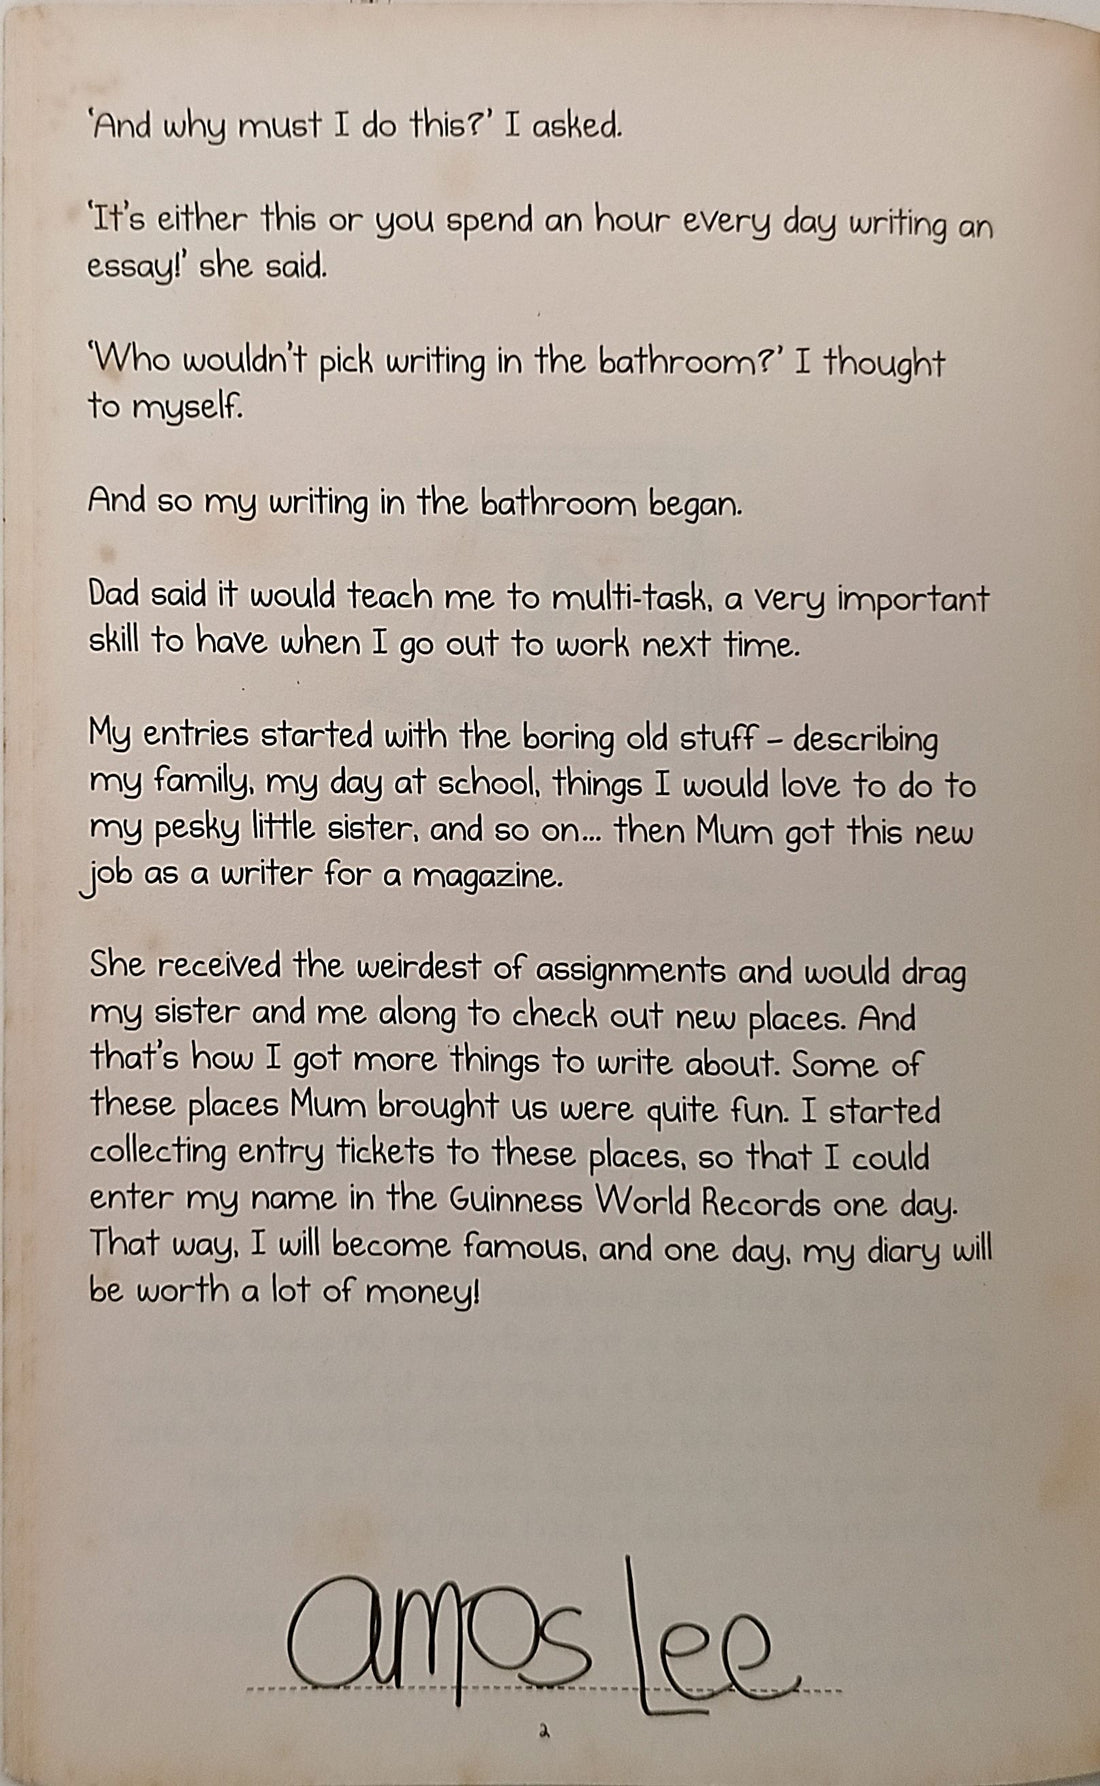 ‘And why must I do this?’ I asked.
‘It’s either this or you spend an hour every day writing an
essay!’ she said.
‘Who wouldn’t pick writing in the bathroom?’ I thought
to myself.
And so my writing in the bathroom began.
Dad said it would teach me to multi-task, a very important
skill to have when I go out to work next time.
My entries started with the boring old stuff – describing
my family, my day at school, things I would love to do to
my pesky little sister, and so on... then Mum got this new
job as a writer for a magazine.
She received the weirdest of assignments and would drag
my sister and me along to check out new places. And
that’s how I got more things to write about. Some of
these places Mum brought us were quite fun. I started
collecting entry tickets to these places, so that I could
enter my name in the Guinness World Records one day.
That way, I will become famous, and one day, my diary will
be worth a lot of money!
amos Lee
2